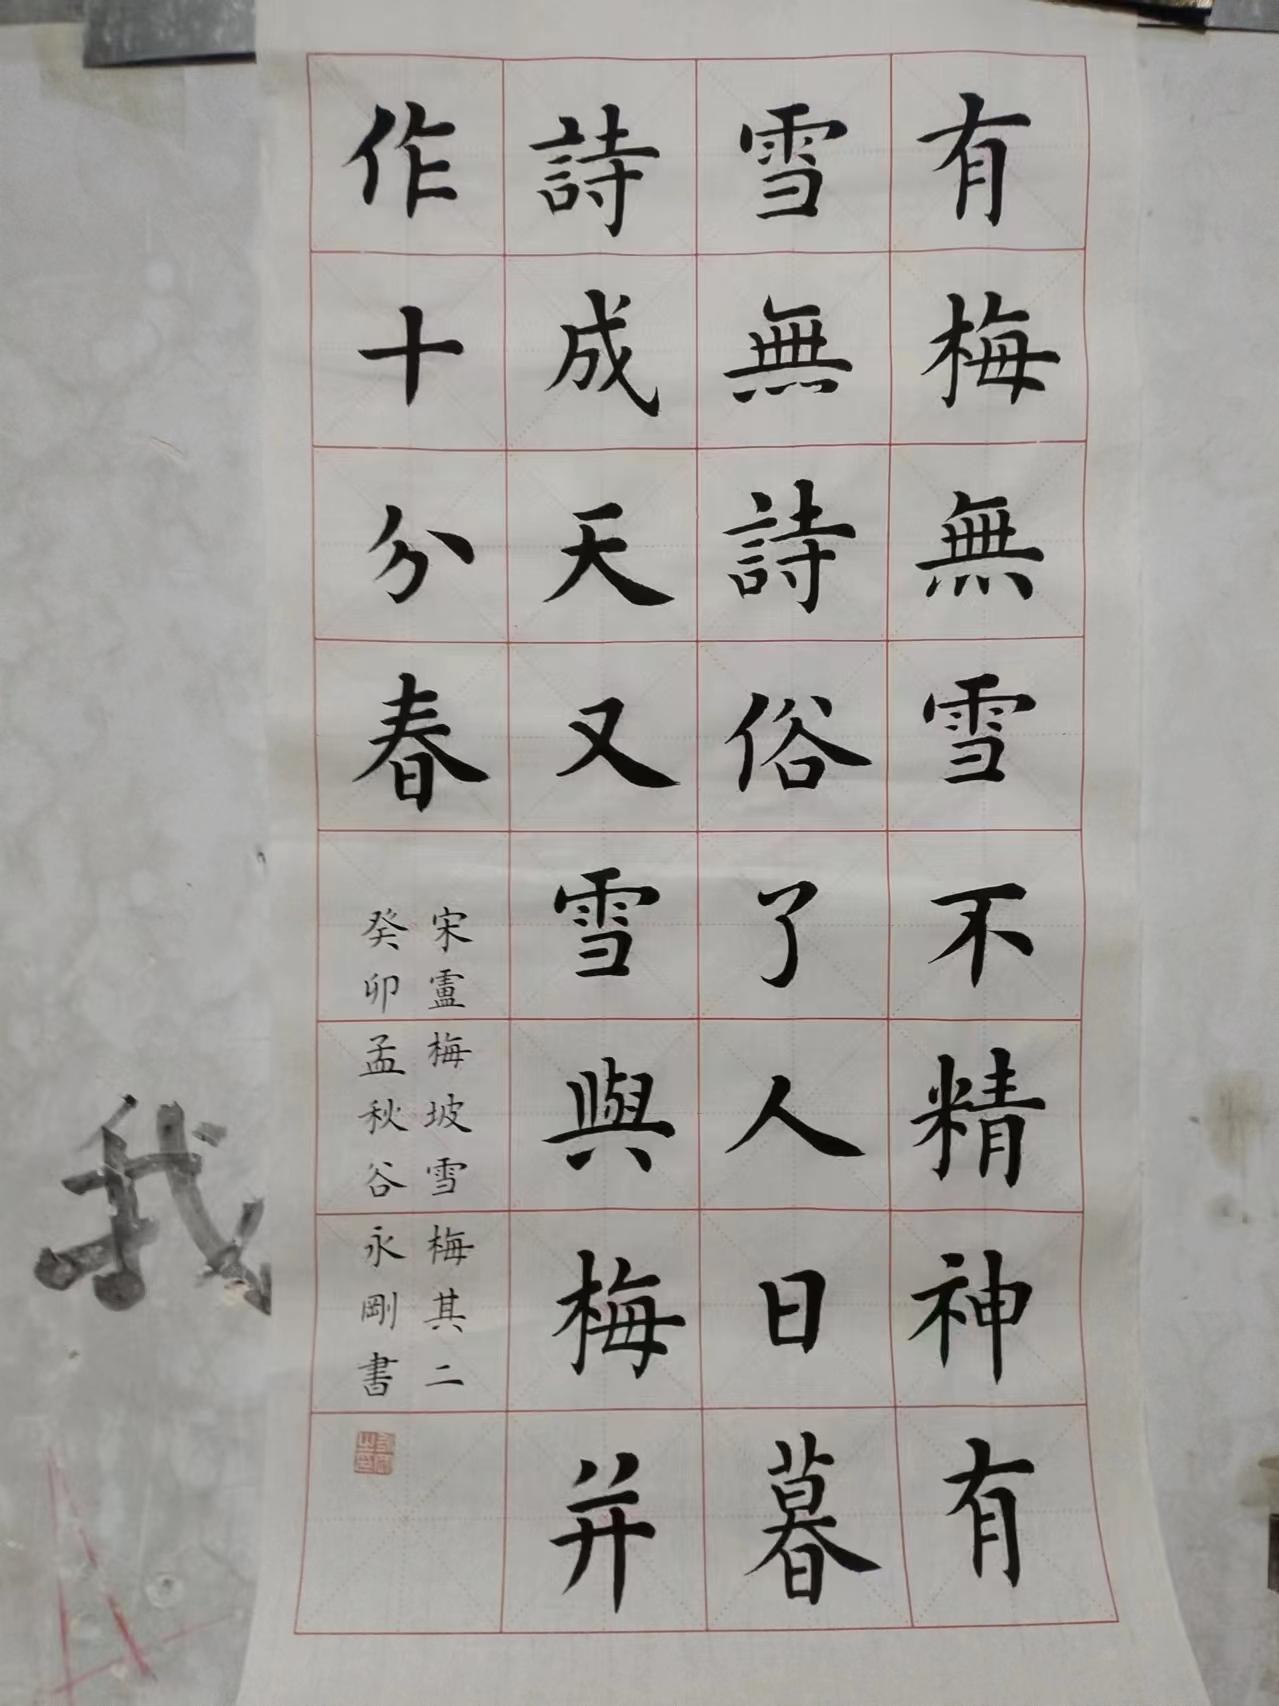 有梅無雪不精神有
雪無詩俗了人日暮
詩成天又雪與梅并
作十分春
宋盧梅坡雪梅其二
癸卯孟秋谷永剛書
我